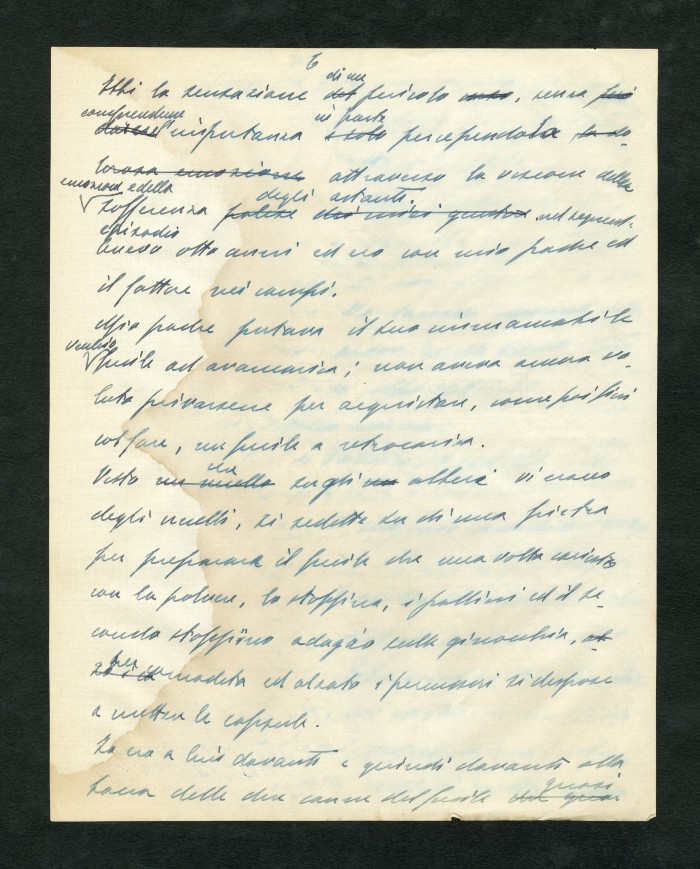 6
di un
Ebbi la sensazione del pericolo, senza
comprenderne in parte
l'importanza e solo percependola
emozione attraverso la visione della
emozione e della degli astanti.
sofferenza nel seguente
episodio
Avevo otto anni ed ero con mio padre ed
il fattore nei campi.
Mio padre portava il suo immancabile
vecchio
fucile ad avancarica; non aveva ancora vo-
luto privarsene per acquistare, come poi finì
col fare, un fucile a retrocarica.
che
Visto un uccello sugli alberi vi erano
degli uccelli, si sedette su di una pietra
per preparare il fucile che una volta caricato
con la polvere, lo stoppino, i pallini ed il se-
condo stoppino adagiò sulle ginocchia,
per comodità ed alzato i percussori si dispose
a mettere le capsule.
Io ero a lui davanti e quindi davanti alla
quasi
bocca delle due canne del fucile